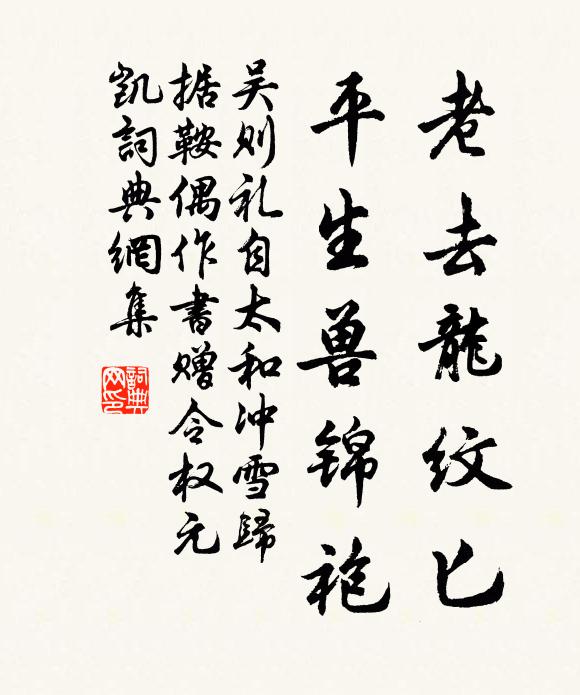 老去龍紋匕
平生兽锦袍
吴则礼自太和冲雪歸
据鞍偶作書赠令权元
凯詞典網集
詞典
网印